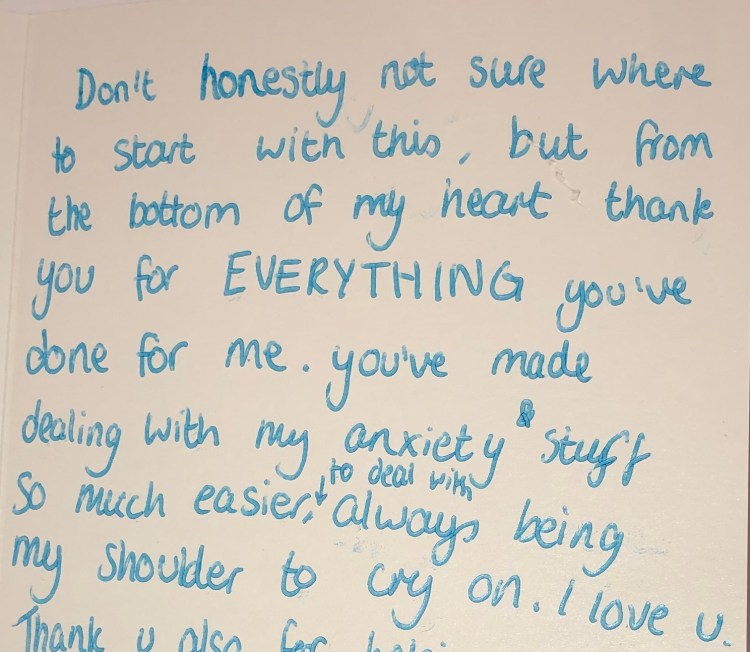 Don't honestly not sure where
to start with this, but from
the bottom of my heart thank
you for EVERYTHING you've
done for me. you've made
dealing with my anxiety & stuff
so much easier, ↓ to deal with always being
my shoulder to cry on. I love u.
Thank u also for